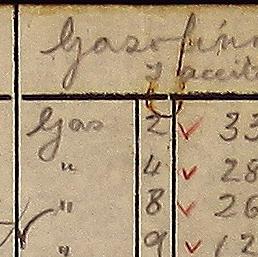 Gasolina
y aceite
Gas 2 ✓ 33
" 4 ✓ 28
" 8 ✓ 26
" 9 ✓ 12